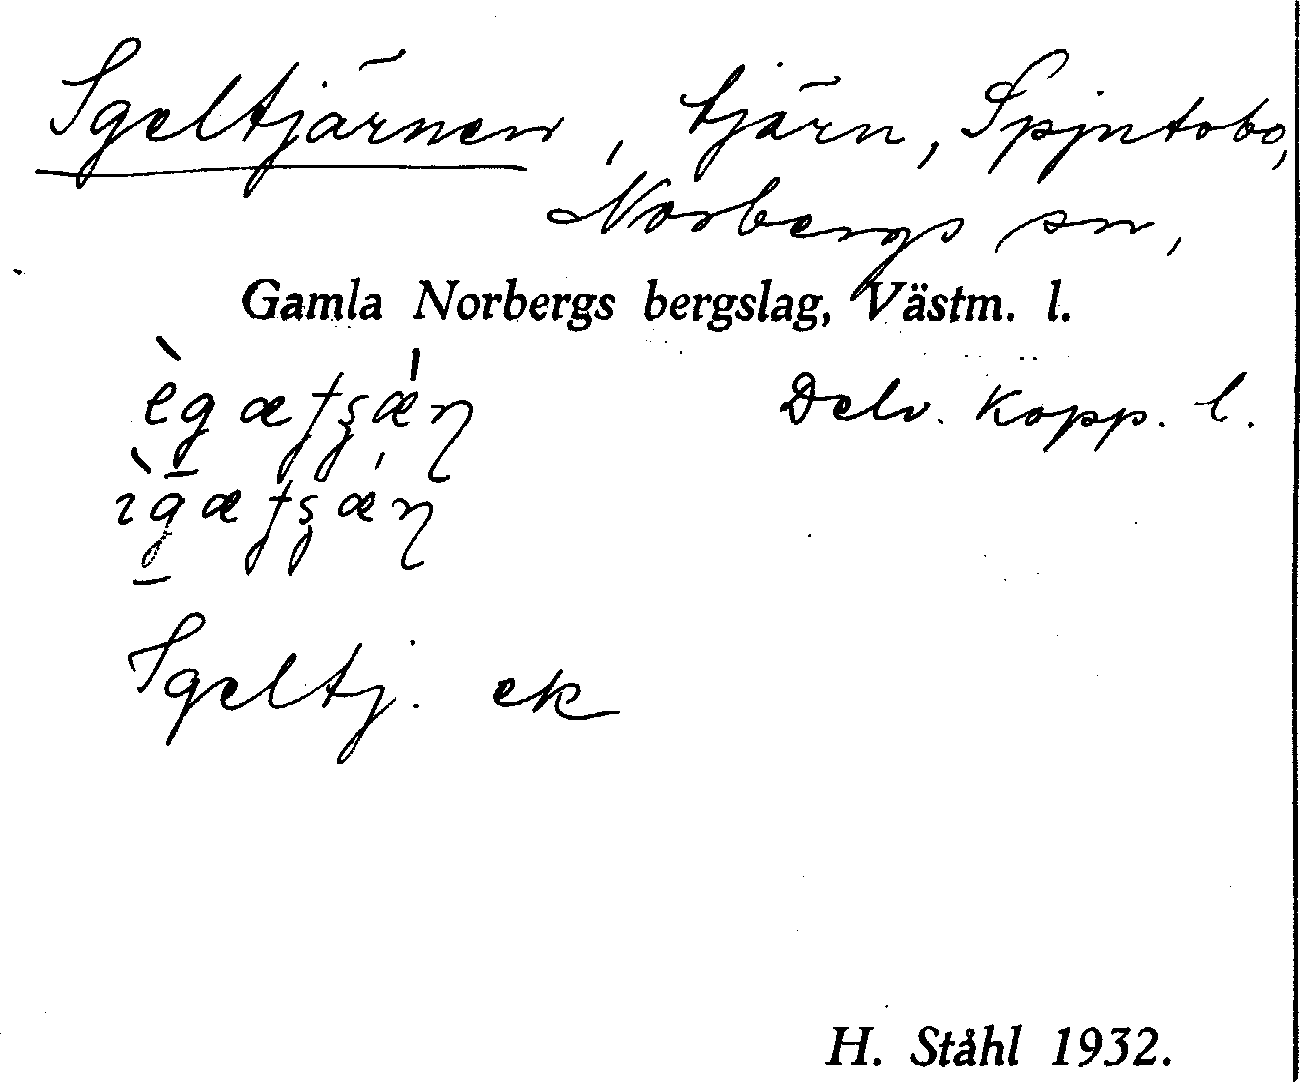 Igeltjärnen, tjärn, Spjutobo,
Norbergs sn,
Gamla Norbergs bergslag, Västm. l.
Delv. Kopp. l.
Igeltj. ek
H. Ståhl 1932.